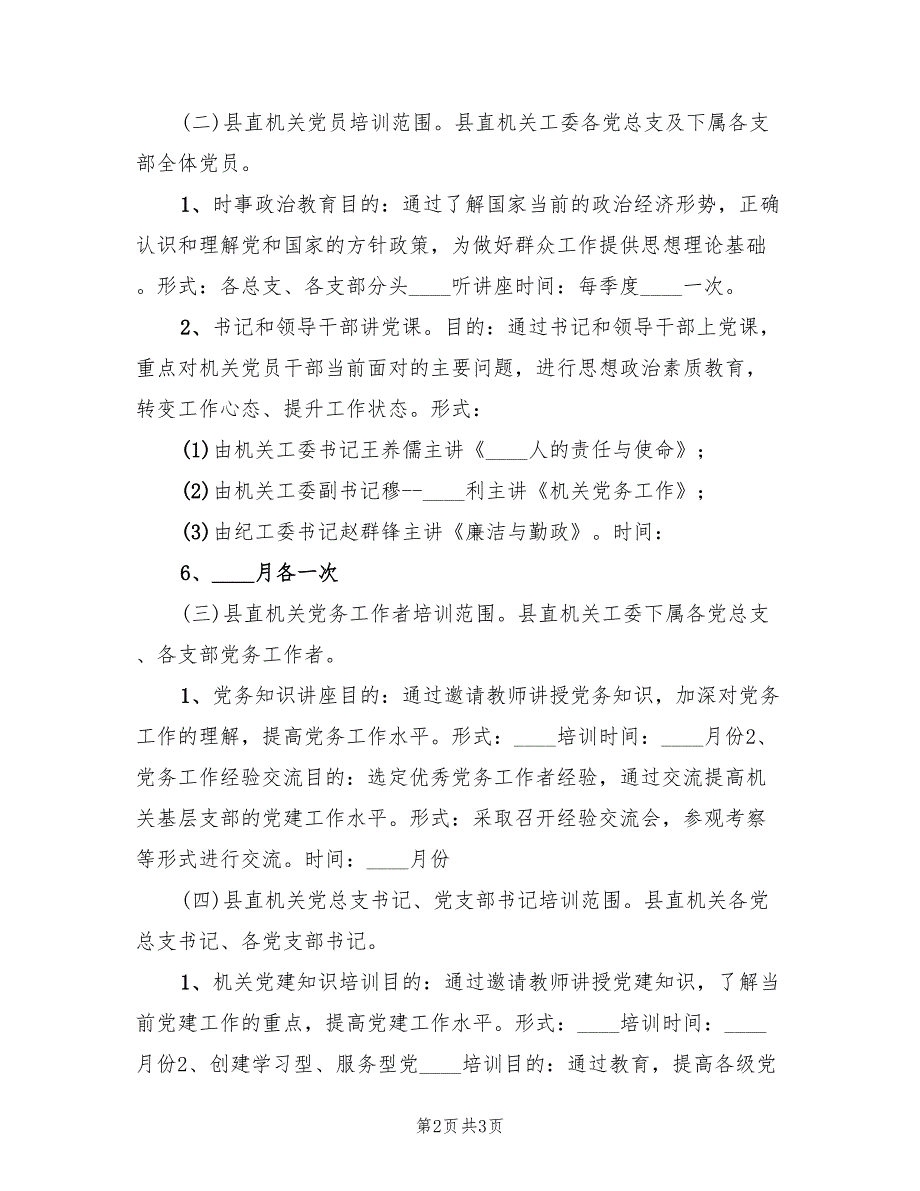 (二)县直机关党员培训范围。县直机关工委各党总支及下属各支
部全体党员。
1、时事政治教育目的：通过了解国家当前的政治经济形势，正确
认识和理解党和国家的方针政策，为做好群众工作提供思想理论基础
。形式：各总支、各支部分头____听讲座时间：每季度____一次。
2、书记和领导干部讲党课。目的：通过书记和领导干部上党课，
重点对机关党员干部当前面对的主要问题，进行思想政治素质教育，
转变工作心态、提升工作状态。形式：
(1)由机关工委书记王养儒主讲《____人的责任与使命》；
(2)由机关工委副书记穆--____利主讲《机关党务工作》；
(3)由纪工委书记赵群锋主讲《廉洁与勤政》。时间：
6、____月各一次
(三)县直机关党务工作者培训范围。县直机关工委下属各党总支
、各支部党务工作者。
1、党务知识讲座目的：通过邀请教师讲授党务知识，加深对党务
工作的理解，提高党务工作水平。形式：____培训时间：____月份2、
党务工作经验交流目的：选定优秀党务工作者经验，通过交流提高机
关基层支部的党建工作水平。形式：采取召开经验交流会，参观考察
等形式进行交流。时间：____月份
(四)县直机关党总支书记、党支部书记培训范围。县直机关各党
总支书记、各党支部书记。
1、机关党建知识培训目的：通过邀请教师讲授党建知识，了解当
前党建工作的重点，提高党建工作水平。形式：____培训时间：____
月份2、创建学习型、服务型党____培训目的：通过教育，提高各级党
第2页 共3页